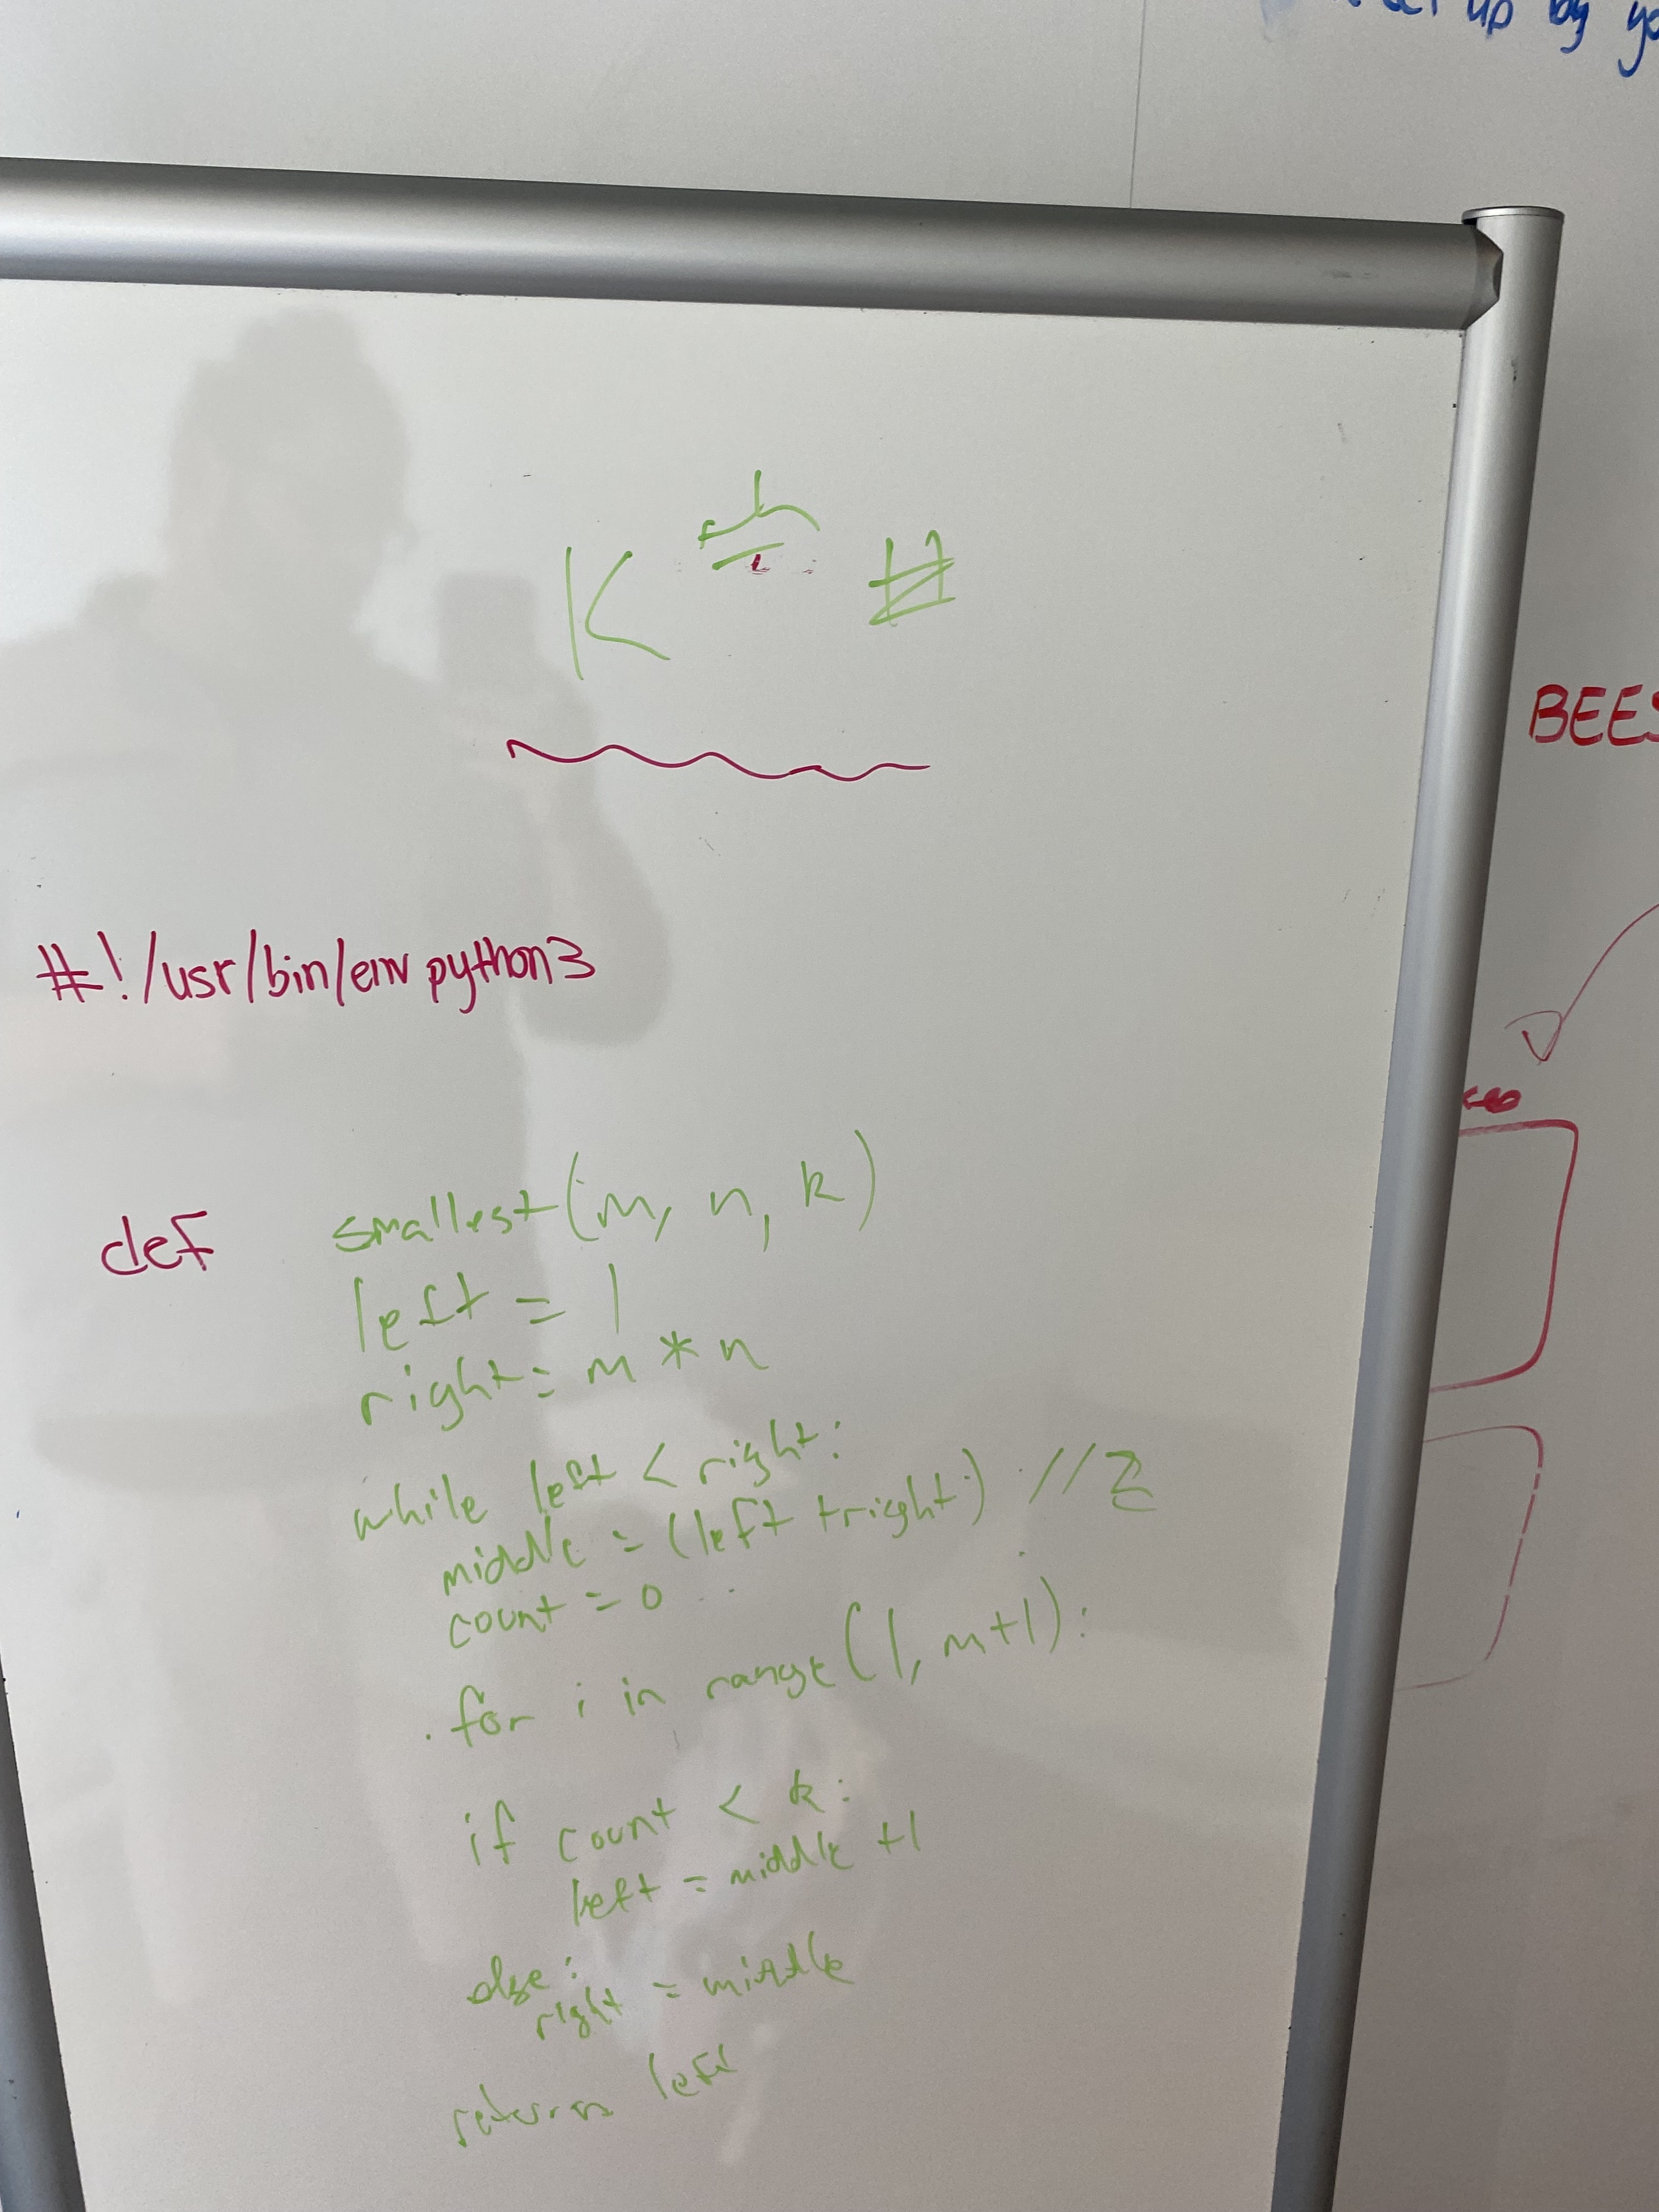 up by yo
K th #
BEES
#!/usr/bin/env python3
def smallest(m, n, k)
left = 1
right = m * n
while left < right:
middle = (left + right) // 2
count = 0
for i in range(1, m+1):
if count < k:
left = middle + 1
else:
right = middle
return left